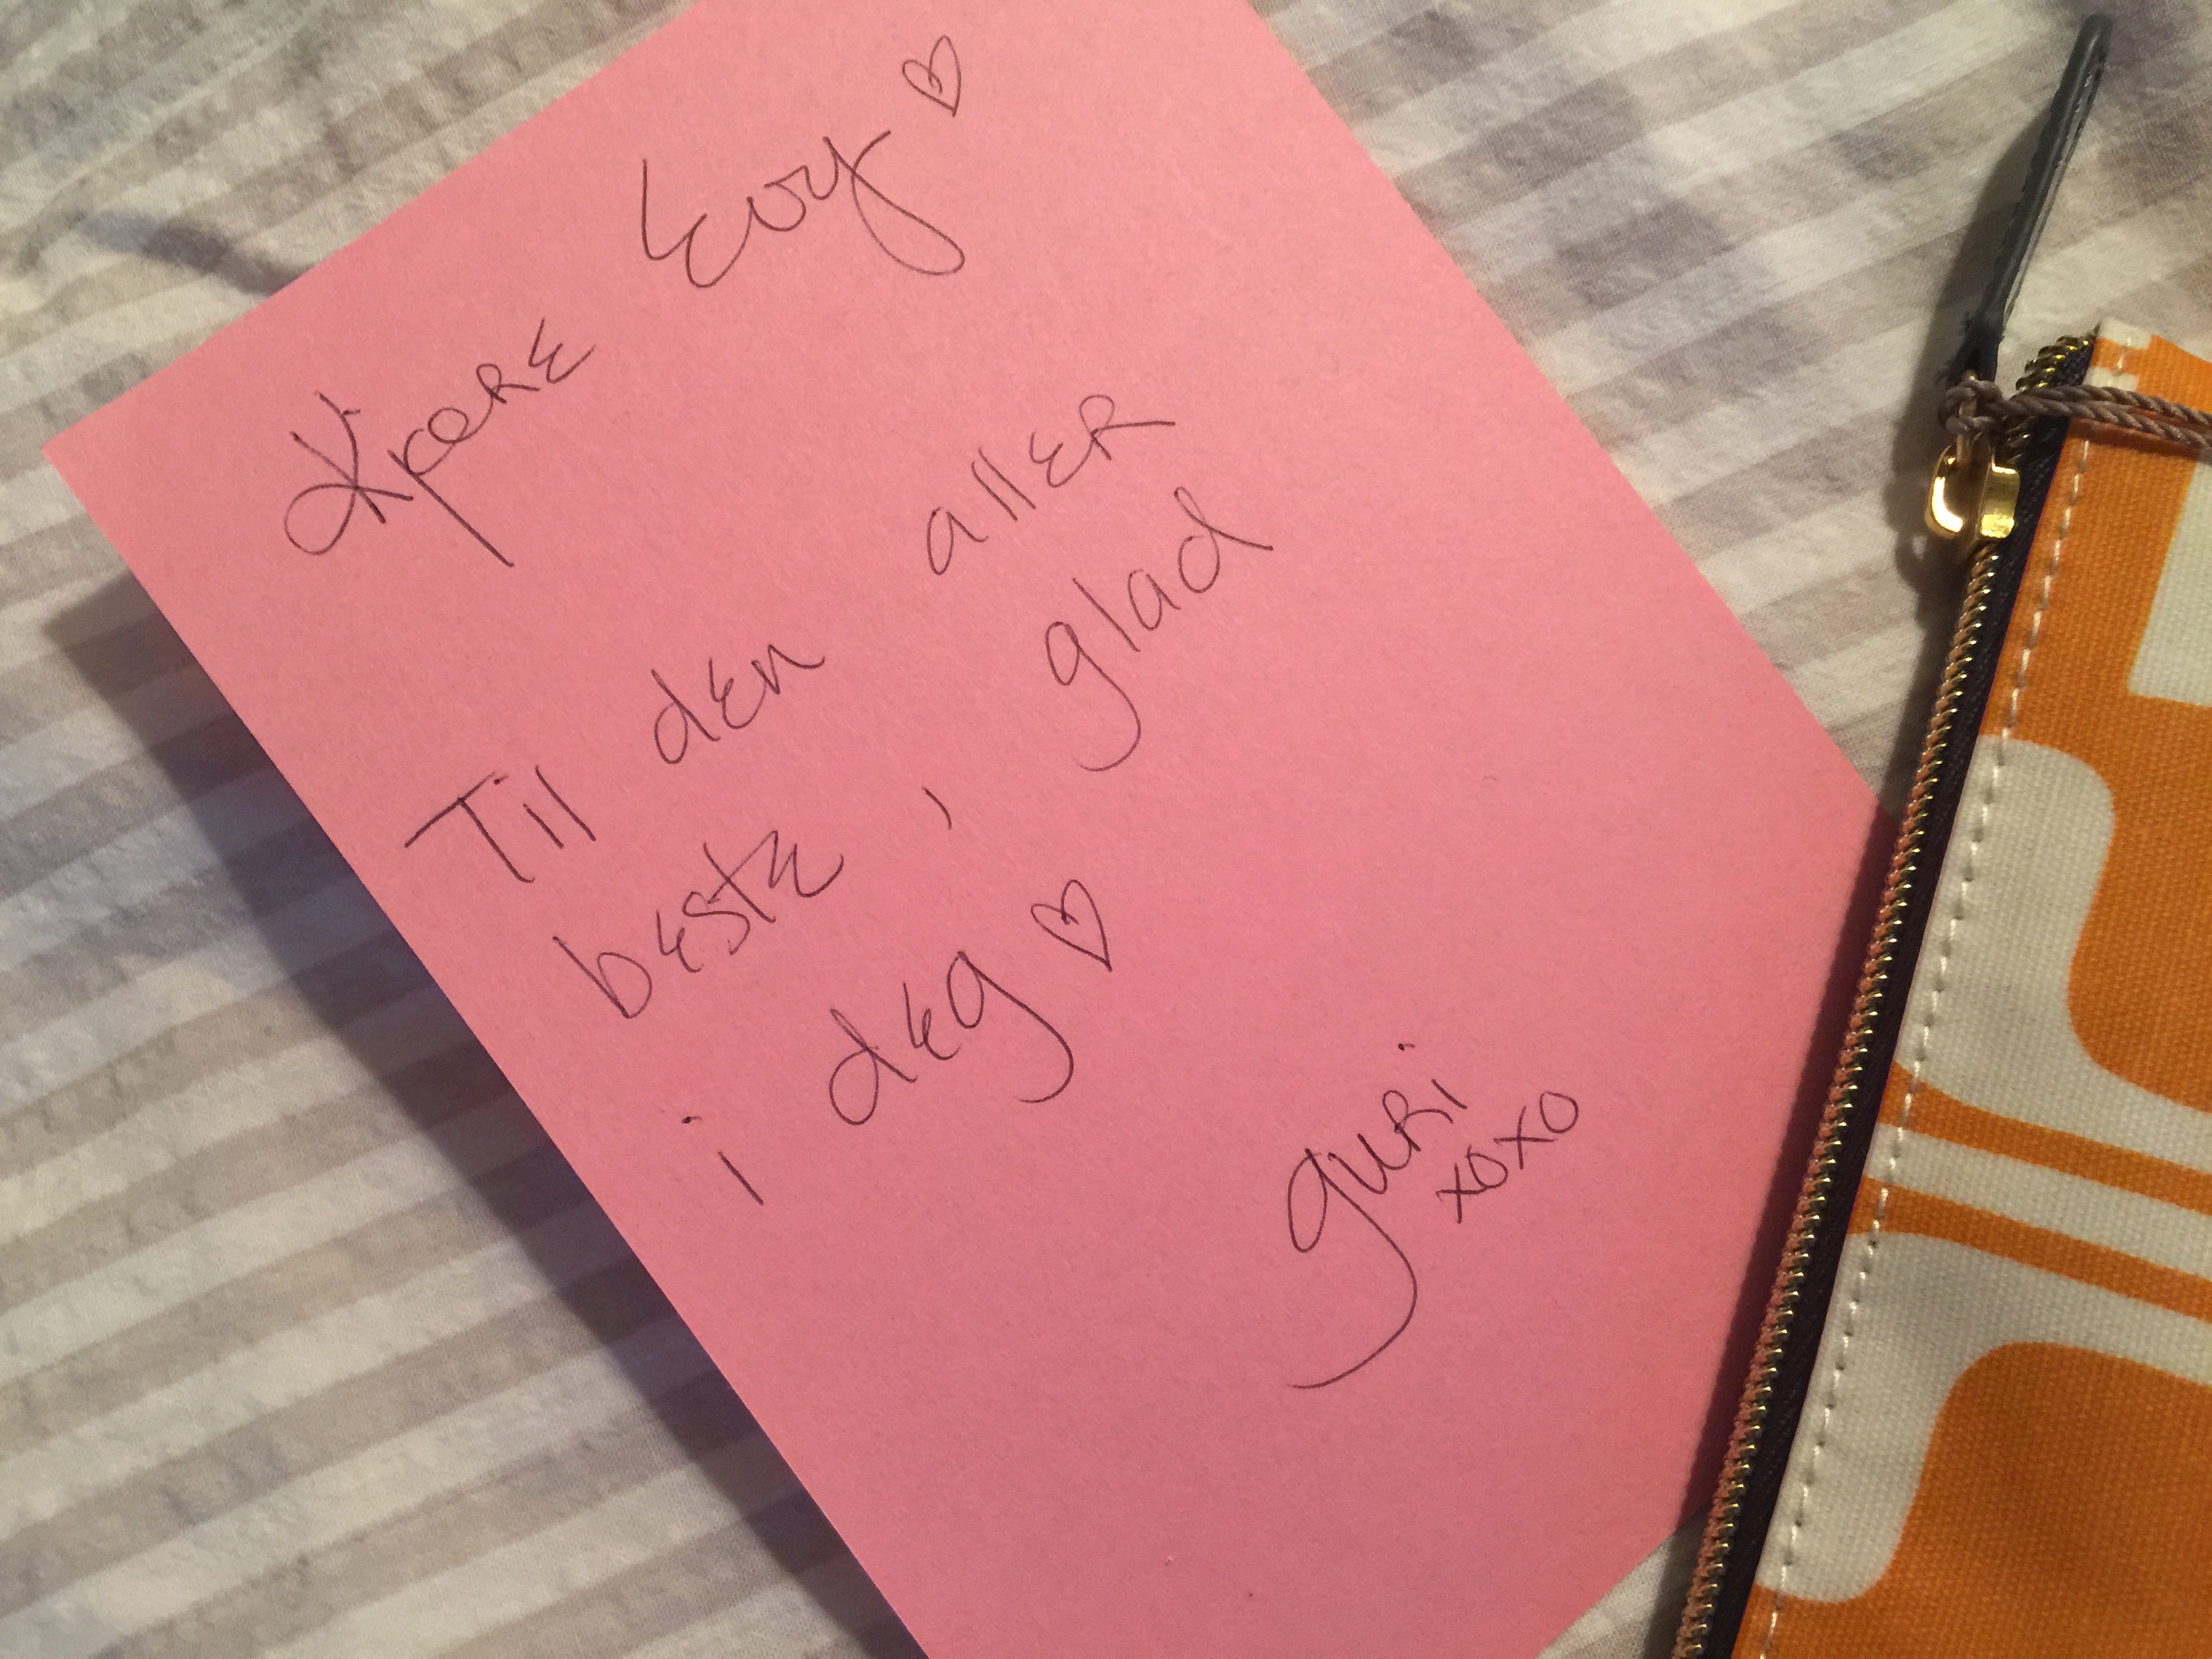 Kjære Evy ♡
Til den aller
beste, glad
i deg ♡
guri
xoxo